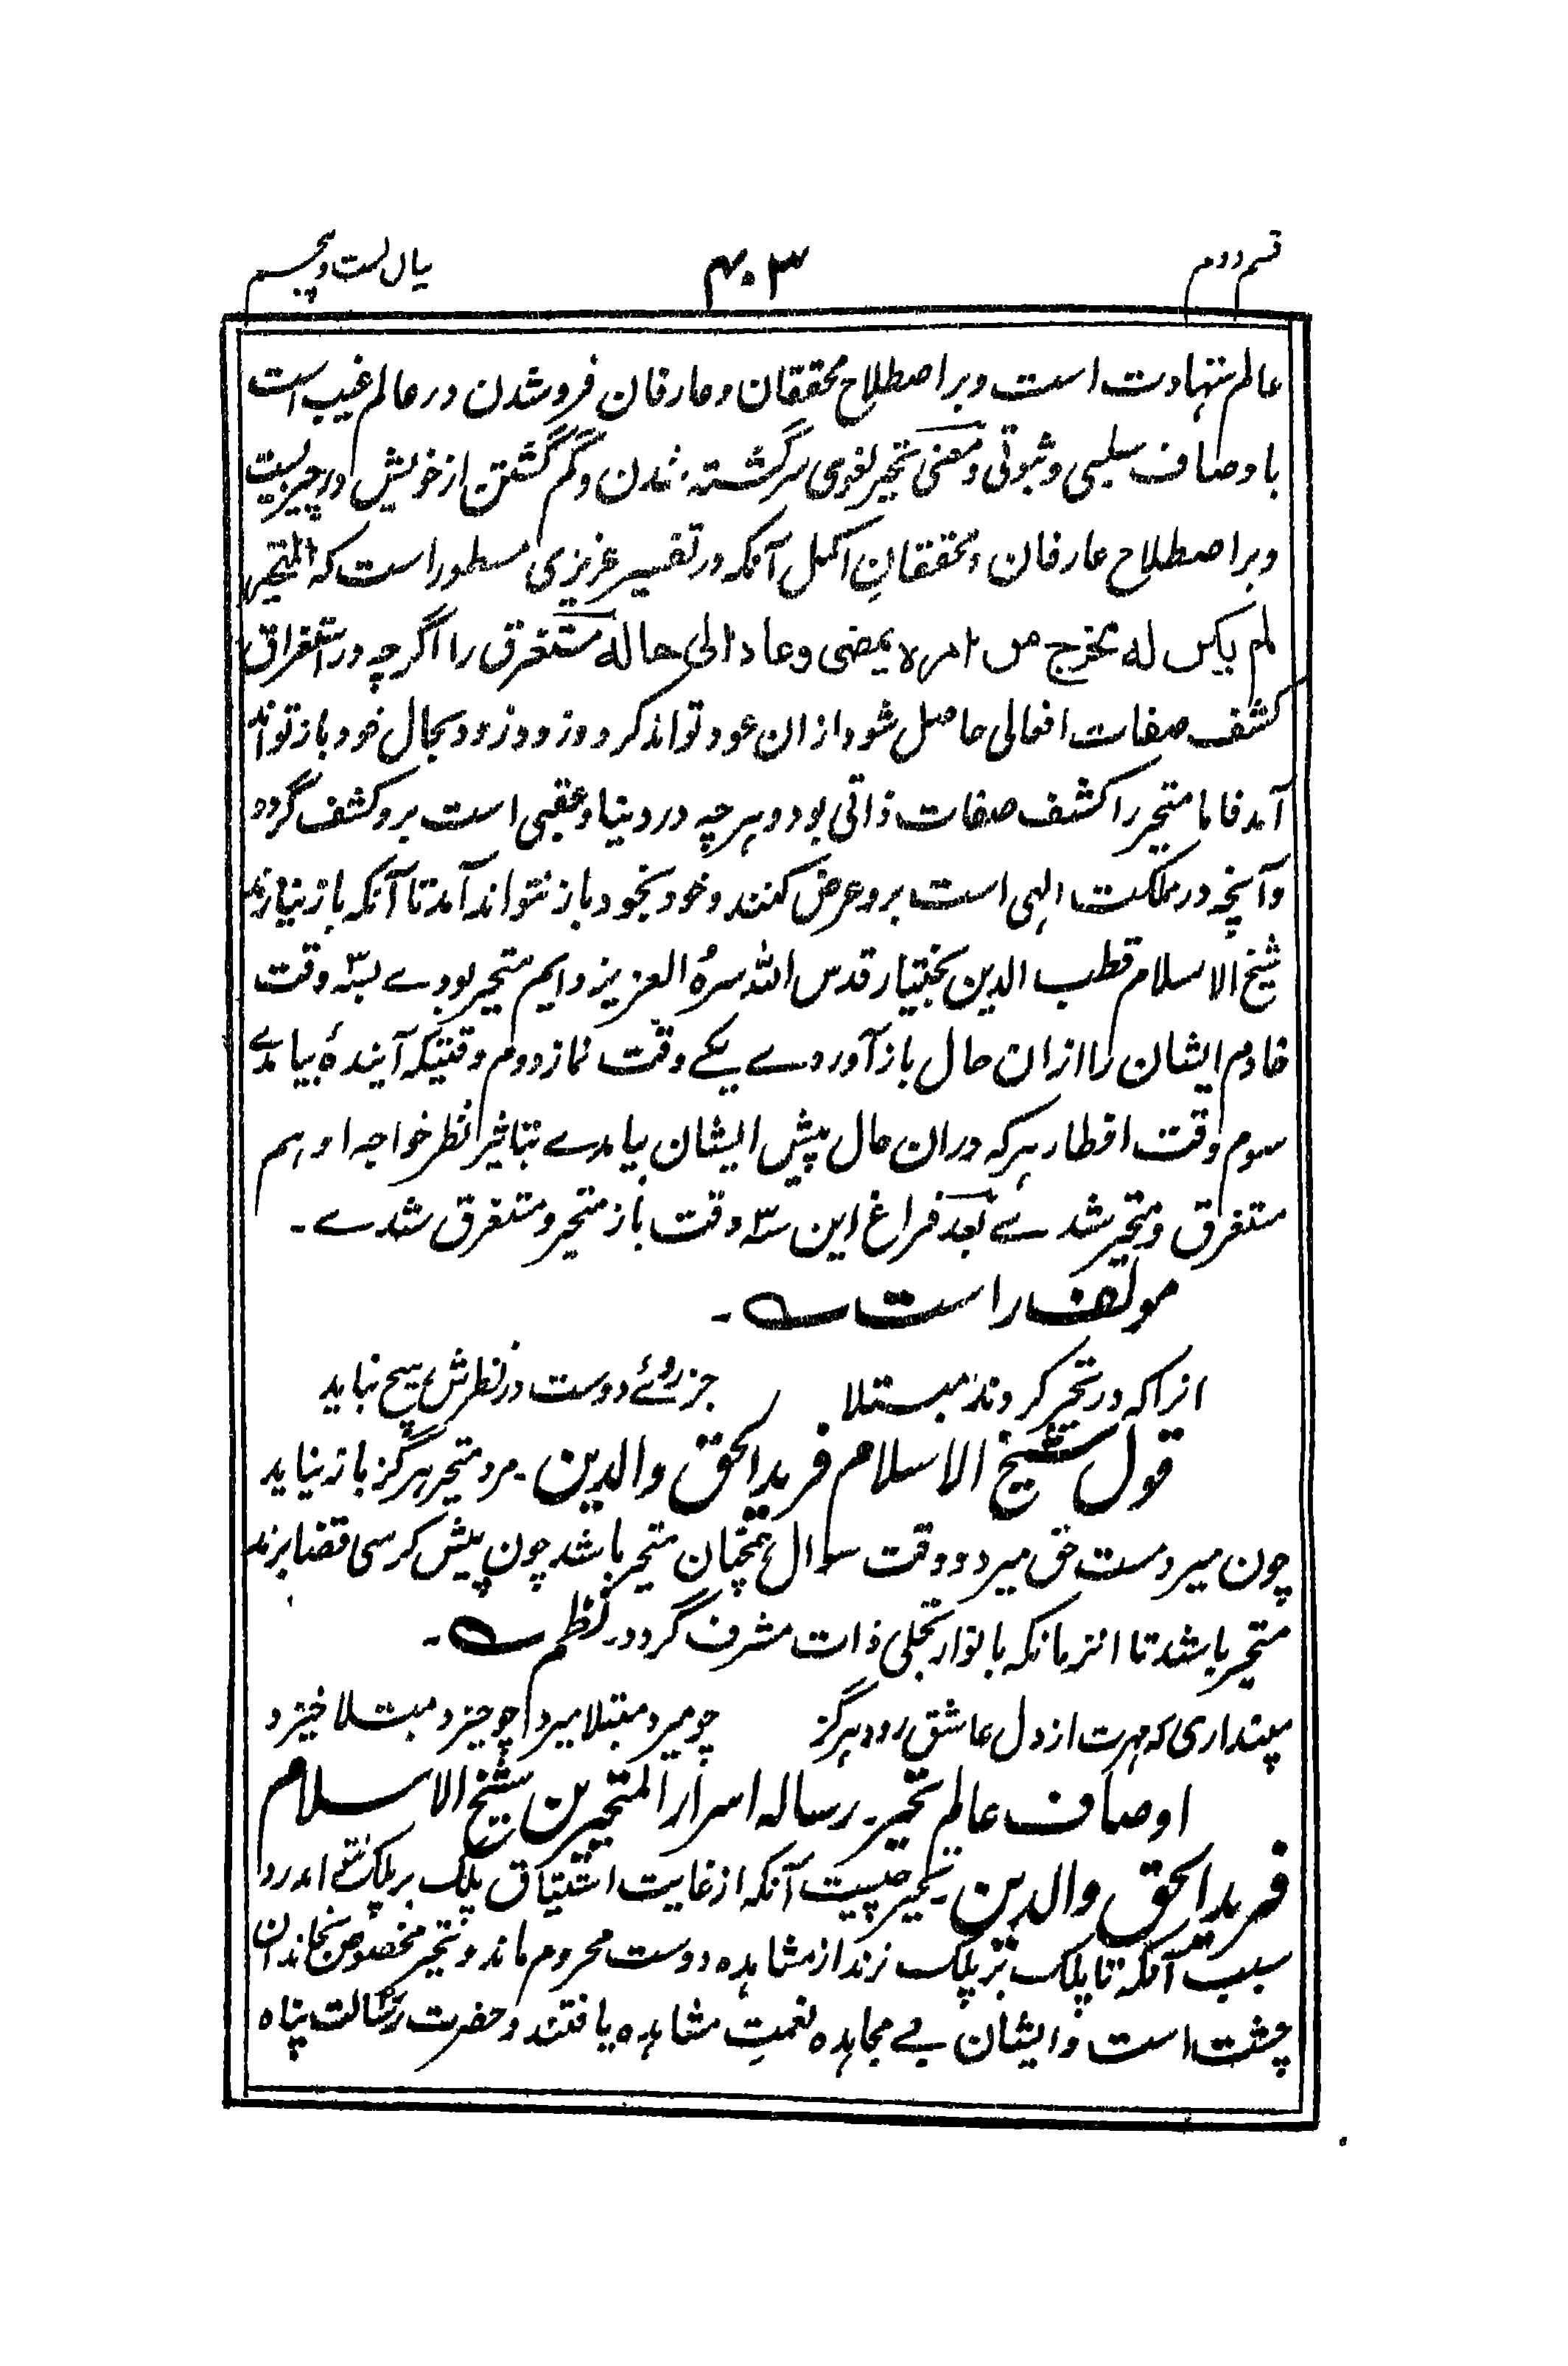 قسم دوم
۴۰۳
بیان بست و پنجم
عالم شهادت است و بر اصطلاح محققان و عارفان فرو شدن در عالم غیب است
باوصاف سلبی و ثبوتی و معنی تحیر لغوی سرگشته شدن و گم گشتن از خویش در چیزیست
و بر اصطلاح عارفان و محققانِ اکمل آنکه در تفسیر عزیزی مسطور است که المتحیر
لم یکن له تخرج من امره یمضی وعاد الی حاله مستغرق را اگرچه در استغراق
کشف صفات افعالی حاصل شود ازان عود تواند کرد و زود زود بحال خود باز تواند
آمد فاما متحیر را کشف صفات ذاتی بود و هرچه در دنیا و عقبی است برو کشف گردد
و آنچه در مملکت الهی است برو عرض کنند و خود بخود باز نتواند آمد تا آنکه باز نیارند
شیخ الاسلام قطب الدین بختیار قدس الله سره العزیز دایم متحیر بودے بسه وقت
خادم ایشان را ازان حال باز آوردے یکے وقت نماز دوم وقتیکه آیندهٔ بیامدے
سوم وقت افطار هرکه دران حال پیش ایشان بیامدے بتاثیر نظر خواجه او هم
مستغرق و متحیر شدے بعد فراغ این سه وقت باز متحیر و مستغرق شدے ۔
مولف راست ؎ ۔
انرا که در تحیر کردند مبتلا جز روئے دوست در نظرش هیچ نیاید
قول شیخ الاسلام فرید الحق والدین ۔ مرد متحیر هرگز باز نیاید
چون میرد مست حق میرد و وقت سوال همچنان متحیر باشد چون پیش کرسی قضا برند
متحیر باشد تا انزمانکه بانوار تجلی ذات مشرف گردد ۔ نظم ؎ ۔
مپنداری که مهرت از دل عاشق رود هرگز چو میرد مبتلا میرد چو خیزد مبتلا خیزد
اوصاف عالم تحیر ۔ رساله اسرار المتحیرین شیخ الاسلام
فرید الحق والدین ۔ تحیر چیست آنکه از غایت اشتیاق پلک بر پلک اندرد
سبب آنکه تا پلک بر پلک زند از مشاهده دوست محروم ماند و تحیر مخصوص بخاندان
چشت است و ایشان بے مجاهده نعمتِ مشاهده یافتند و حضرت رسالت پناه